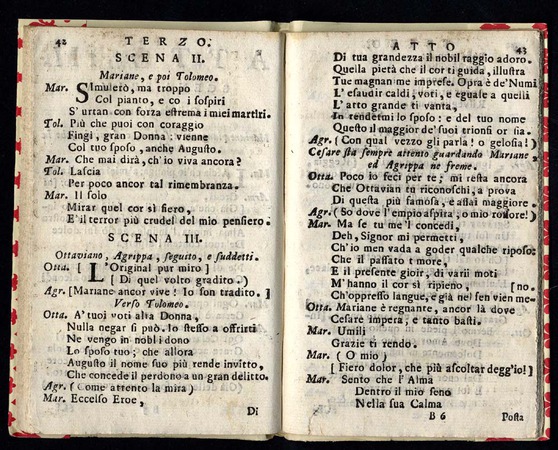 42 TERZO.
SCENA II.
Mariane, e poi Tolomeo.
Mar. SImulerò, ma troppo
Col pianto, e co i sospiri
S'urtan con forza estrema i miei martiri.
Tol. Più che puoi con coraggio
Fingi, gran Donna: vienne
Col tuo sposo, anche Augusto.
Mar. Che mai dirà, ch'io viva ancora?
Tol. Lascia
Per poco ancor tal rimembranza.
Mar. Il solo
Mirar quel cor sì fiero,
E'il terror più crudel del mio pensiero.
SCENA III.
Ottaviano, Agrippa, seguito, e suddetti.
Otta. [ L'Original pur miro ]
[ Di quel volto gradito. )
Agr. [Mariane ancor vive! Io son tradito. ]
Verso Tolomeo.
Otta. A' tuoi voti alta Donna,
Nulla negar si può. Io stesso a offrirti
Ne vengo in nobil dono
Lo sposo tuo; che allora
Augusto il nome suo più rende invitto,
Che concede il perdono a un gran delitto.
Agr. (Come attento la mira)
Mar. Eccelso Eroe,
Di
ATTO 43
Di tua grandezza il nobil raggio adoro.
Quella pietà che il cor ti guida, illustra
Tue magnan me imprese. Opra è de'Numi
L'esaudir caldi, voti, e eguale a quelli
L'arto grande ti vanta,
In rendermi lo sposo: e del tuo nome
Questo il maggior de'suoi trionfi or sia.
Agr. (Con qual vezzo gli parla! o gelosia!)
Cesare sta sempre attento guardando Mariane,
ed Agrippa ne freme.
Otta. Poco io feci per te; mi resta ancora
Che Ottavian tu riconoschi, a prova
Di questa più famosa, e assai maggiore.
Agr. (So dove l'empio aspira, o mio rossore!)
Mar. Ma se tu me'l concedi,
Deh, Signor mi permetti,
Ch'io men vada a goder qualche riposo:
Che il passato t more,
E il presente gioir, di varii moti
M'hanno il cor sì ripieno, [no.
Ch'oppresso langue, e già nel sen vien me-
Otta. Mariane è regnante, ancor là dove
Cesare impera; e tanto basti.
Mar. Umili
Grazie ti rendo.
Mar. ( O mio)
[ Fiero dolor, che più ascoltar degg'io!]
Mar. Sento che l'Alma
Dentro il mio seno
Nella sua Calma
B 6 Posta